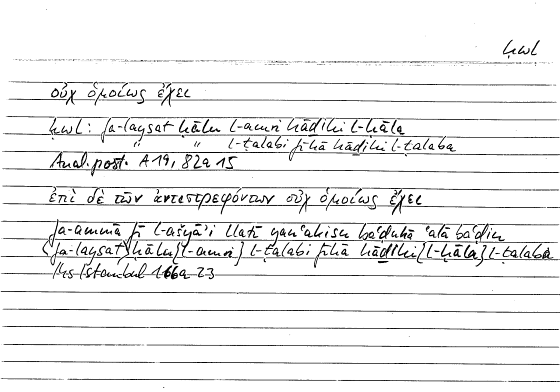 ḥwl
οὐχ ὁμοίως ἔχει
ḥwl: fa-laysat ḥālu l-amri hāḏihi l-ḥāla
" " l-ṭalabi fīhā hāḏihi l-ṭalaba
Anal. post. A 19, 82a 15
ἐπὶ δὲ τῶν ἀντιστρεφόντων οὐχ ὁμοίως ἔχει
fa-ammā fī l-ašyāʾi llatī yanʿakisu baʿḍuhā ʿalā baʿḍin
(fa-laysat) ḥālu [l-amri] l-ṭalabi fīhā hāḏihi [l-ḥāla] l-ṭalaba
Hs Istanbul 166a 23